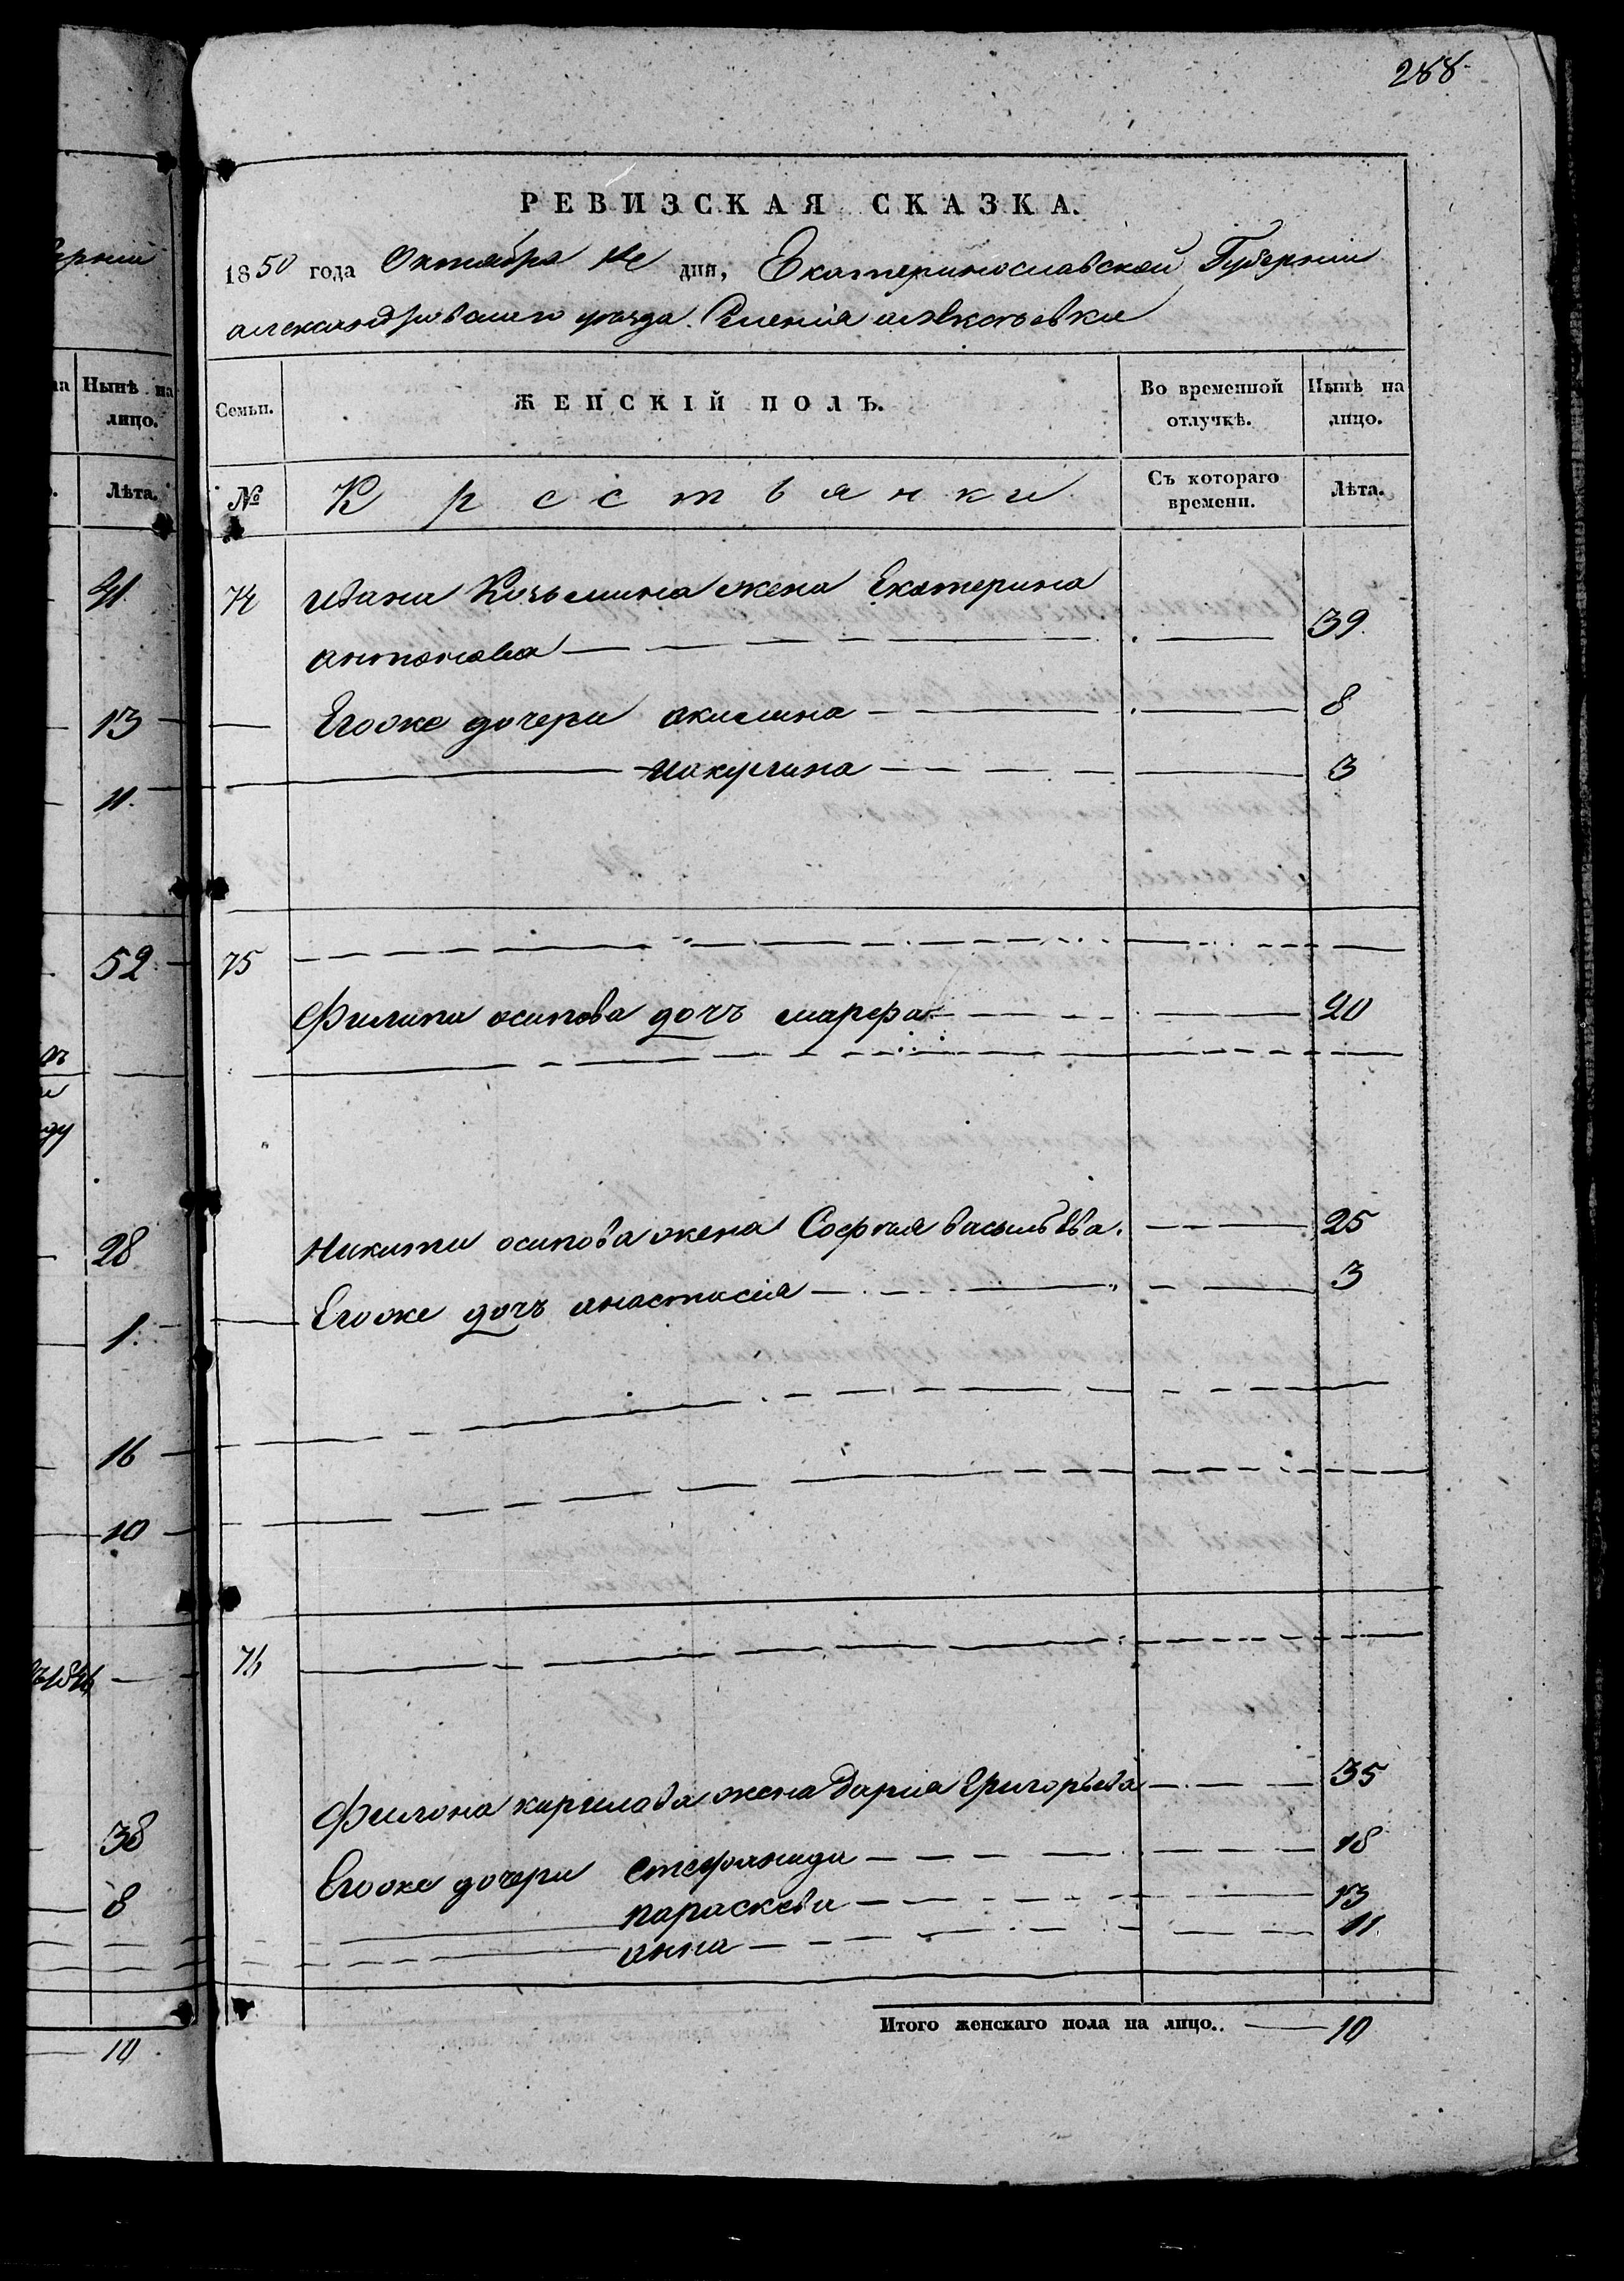 288
РЕВИЗСКАЯ СКАЗКА.
1850 года Октября дня, Екатеринославской Губерніи
александровскаго уезда Селенія
Семьи.
ЖЕНСКІЙ ПОЛЪ.
Во временной отлучкѣ.
Нынѣ на лицо.
№
Крестьянки
Съ котораго времени.
Лѣта.
74 ивана Козьмина жена Екатерина
антонова 39
Егоже дочери акилина 8
иакулина 3
75
Филипа осипова дочъ марфа 20
Никиты осипова жена София васильева 25
Егоже дочъ анастасія 3
76
Филона кирилова жена Дарія Григорьева 35
Егоже дочери стефанида 18
параскева 13
анна 11
Итого женскаго пола на лицо.. 10
ерніи
на Нынѣ на
лицо.
Лѣта.
41
13
11
52
28
1
16
10
38
8
10